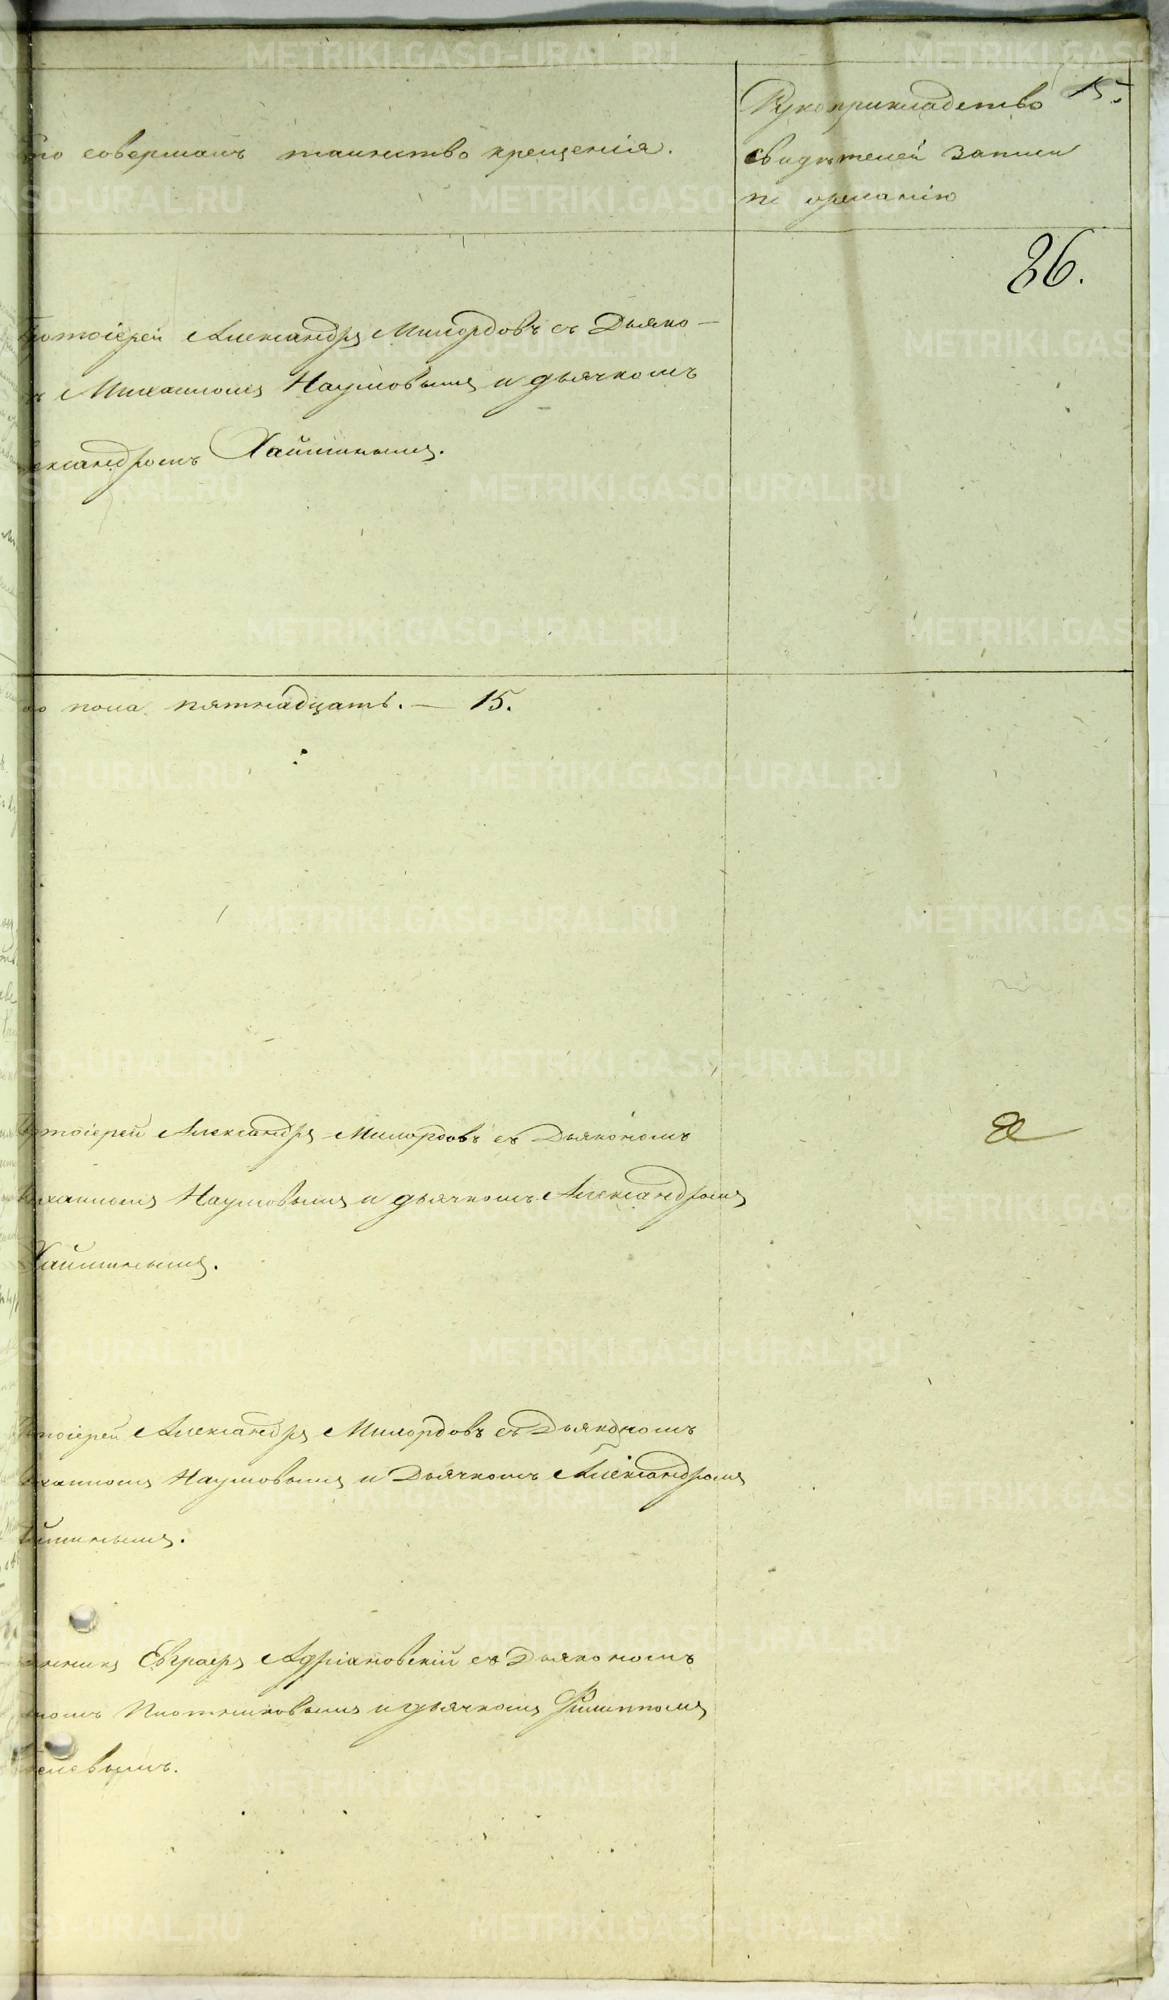 то совершалъ таинство крещенія.
Рукоприкладство 15.
свидѣтелей записи
по желанію
26.
ротоіерей Александръ Милордовъ съ Дьяко-
ъ Михаиломъ Наумовымъ и дьячкомъ
ександромъ Хайминымъ.
го пола пятнадцать. — 15.
отоіерей Александръ Милордовъ съ Дьякономъ
ихаиломъ Наумовымъ и дьячкомъ Александромъ
Хайминымъ.
тоіерей Александръ Милордовъ съ Дьякономъ
ихаиломъ Наумовымъ и Дьячкомъ Александромъ
айминымъ.
щенникъ Евграфъ Адріановскій съ Дьякономъ
номъ Плотниковымъ и дьячкомъ Филиппомъ
METRIKI.GASO-URAL.RU